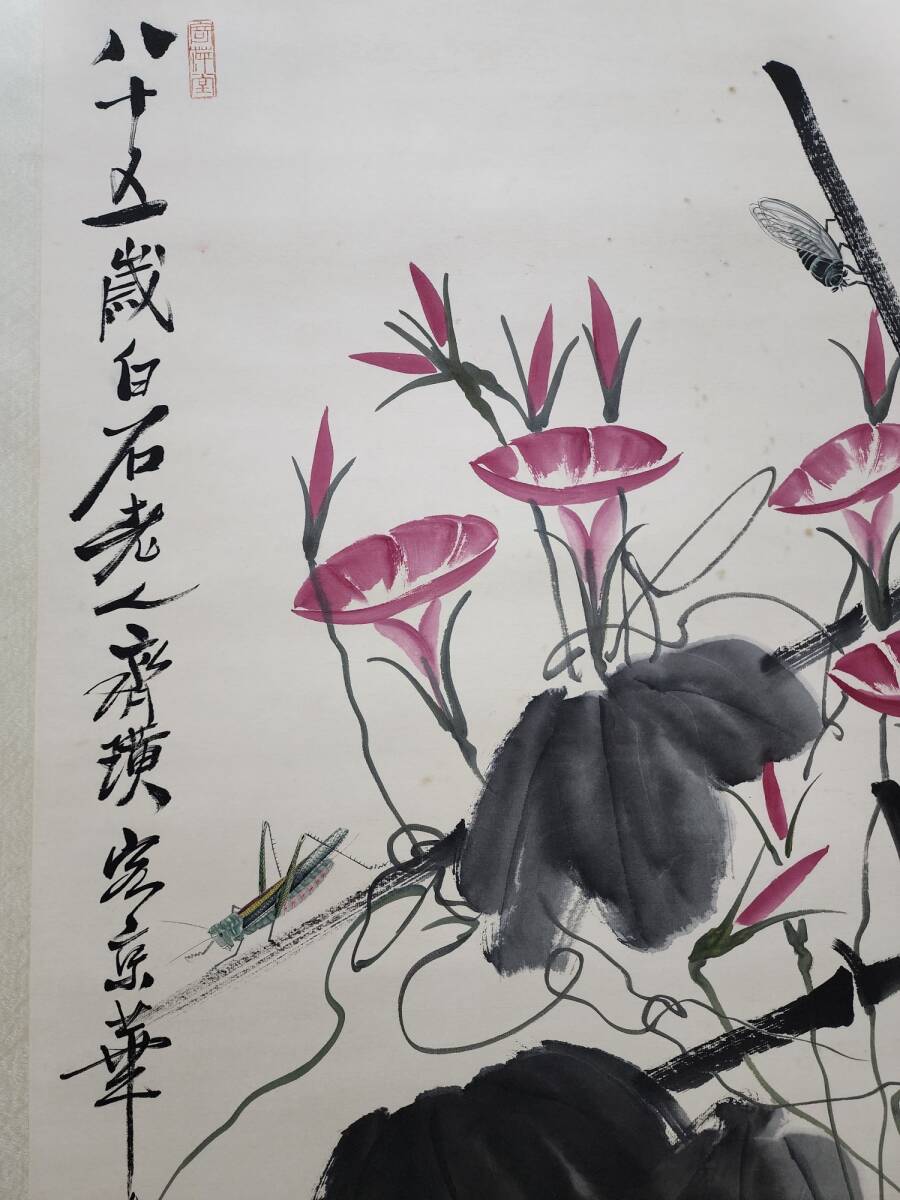 寄萍堂
八十五歲白石老人齊璜客京華